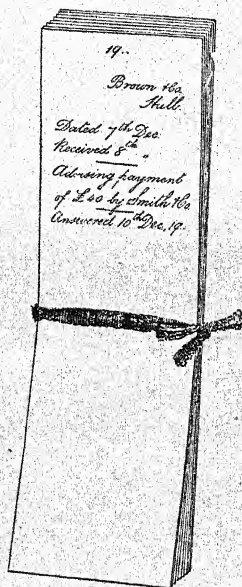 19..
Brown & Co
Hull.
Dated 7th Dec
Received 8th "
Advising payment
of £40 by Smith & Co
Answered 10th Dec, 19..